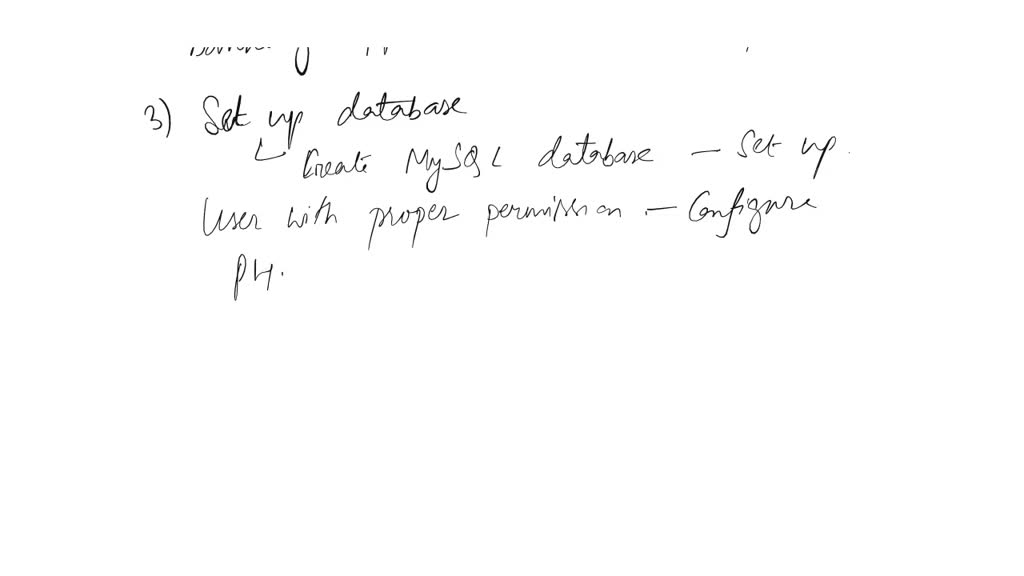 3) Set up database
Create MySQL database - Set up
User with proper permission - Configure
PH.